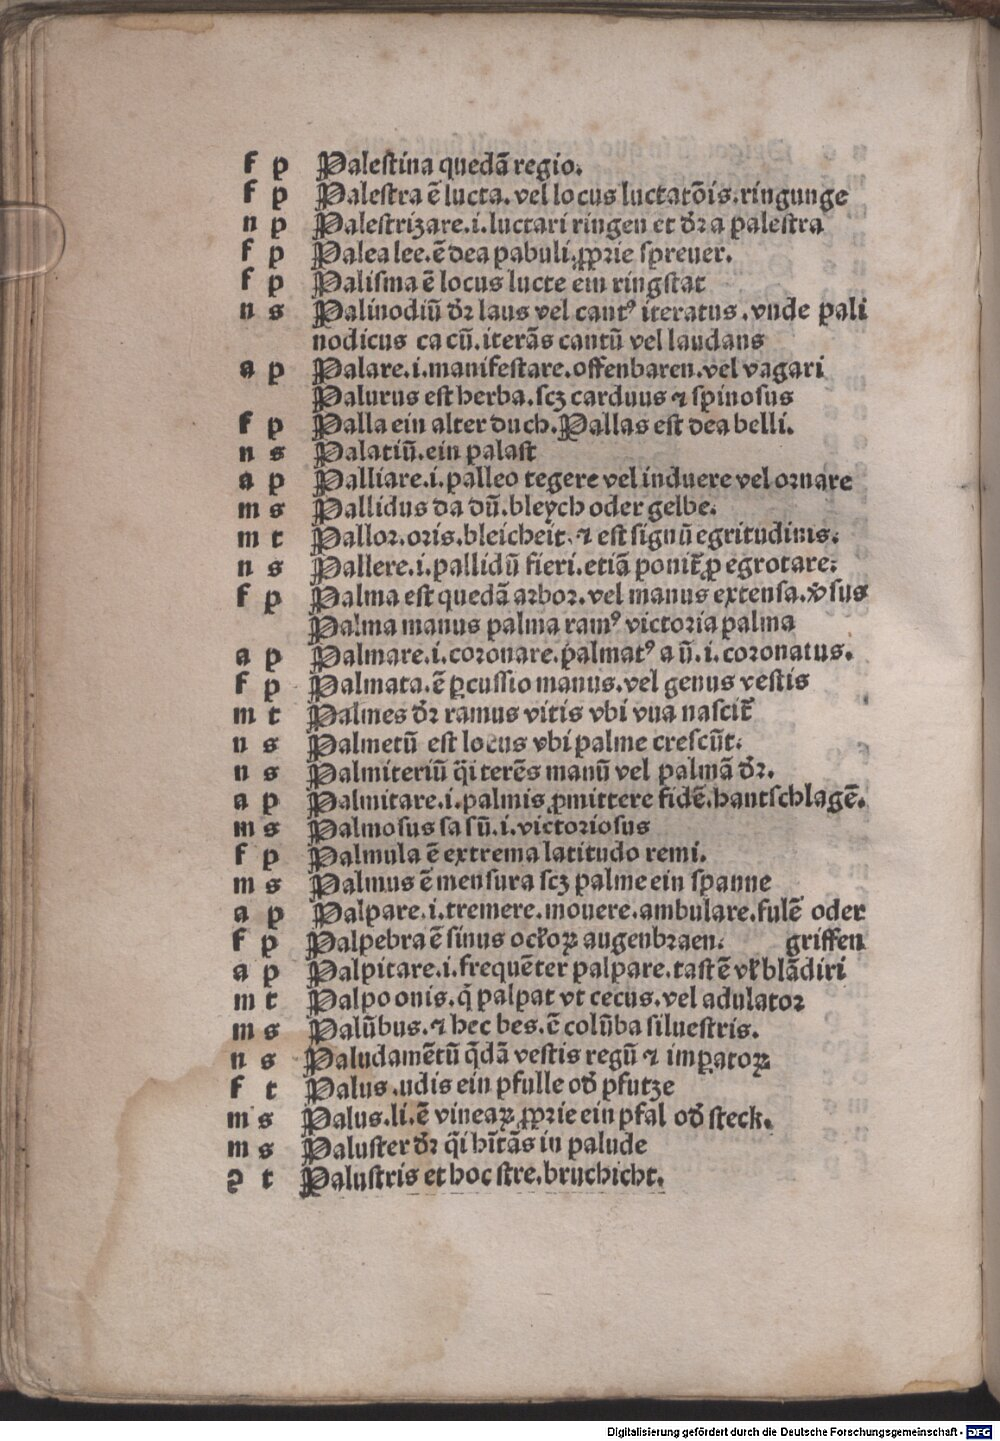 f p Palestina quedã regio.
f p Palestra ẽ lucta. vel locus luctatõis. ringunge
n p Palestrizare .i. luctari ringen et dr̃ a palestra
f p Palea lee. ẽ dea pabuli. ꝓprie spreuer.
f p Palisma ẽ locus lucte ein ringstat
n s Palinodiũ dr̃ laus vel cantꝰ iteratus. vnde pali
nodicus ca cũ. iterãs cantũ vel laudans
a p Palare .i. manifestare. offenbaren. vel vagari
Palurus est herba. scꝫ carduus ⁊ spinosus
f p Palla ein alter duch. Pallas est dea belli.
n s Palatiũ. ein palast
a p Palliare .i. palleo tegere vel induere vel ornare
m s Pallidus da dũ. bleych oder gelbe.
m t Pallor. oris. bleicheit. ⁊ est signũ egritudinis.
n s Pallere .i. pallidũ fieri. etiã ponit̃ ꝓ egrotare.
f p Palma est quedã arbor. vel manus extensa. v̾sus
Palma manus palma ramꝰ victoria palma
a p Palmare .i. coronare. palmatꝰ a ũ .i. coronatus.
f p Palmata. ẽ ꝑcussio manus. vel genus vestis
m t Palmes dr̃ ramus vitis vbi vua nascit̃
n s Palmetũ est locus vbi palme crescũt.
n s Palmiteriũ q̃i terẽs manũ vel palmã dr̃.
a p Palmitare .i. palmis ꝓmittere fidẽ. hantschlagẽ.
m s Palmosus sa sũ .i. victoriosus
f p Palmula ẽ extrema latitudo remi.
m s Palmus ẽ mensura scꝫ palme ein spanne
a p Palpare .i. tremere. mouere. ambulare. fulẽ oder
f p Palpebra ẽ sinus ocl̓oꝝ augenbraen. griffen
a p Palpitare .i. frequẽter palpare. tastẽ vl̓ blãdiri
m t Palpo onis. q̃ palpat vt cecus. vel adulator
m s Palũbus. ⁊ hec bes. ẽ colũba siluestris.
n s Paludamẽtũ q̃dã vestis regũ ⁊ imꝑatoꝝ
f t Palus .udis ein pfulle od̾ pfutze
m s Palus. li. ẽ vineaꝝ ꝓprie ein pfal od̾ steck.
m s Paluster dr̃ q̃i hĩtãs in palude
ꝯ t Palustris et hoc stre. bruchicht.
Digitalisierung gefördert durch die Deutsche Forschungsgemeinschaft - DFG